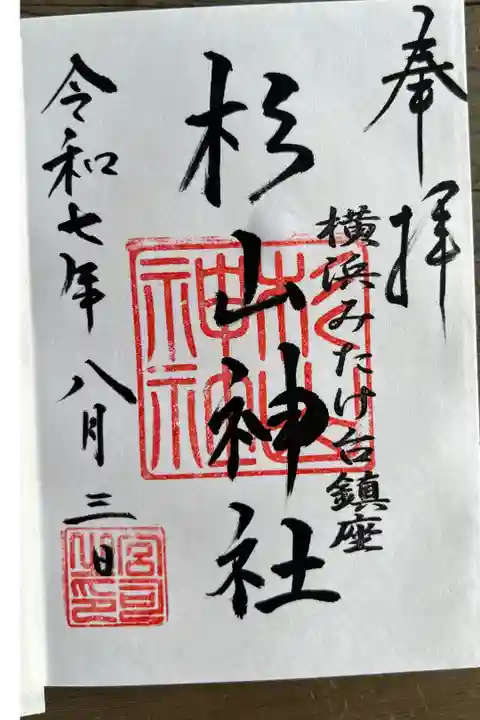 奉拝
横浜みたけ台鎮座
杉山神社
令和七年八月三日
杉山神社
宮司之印